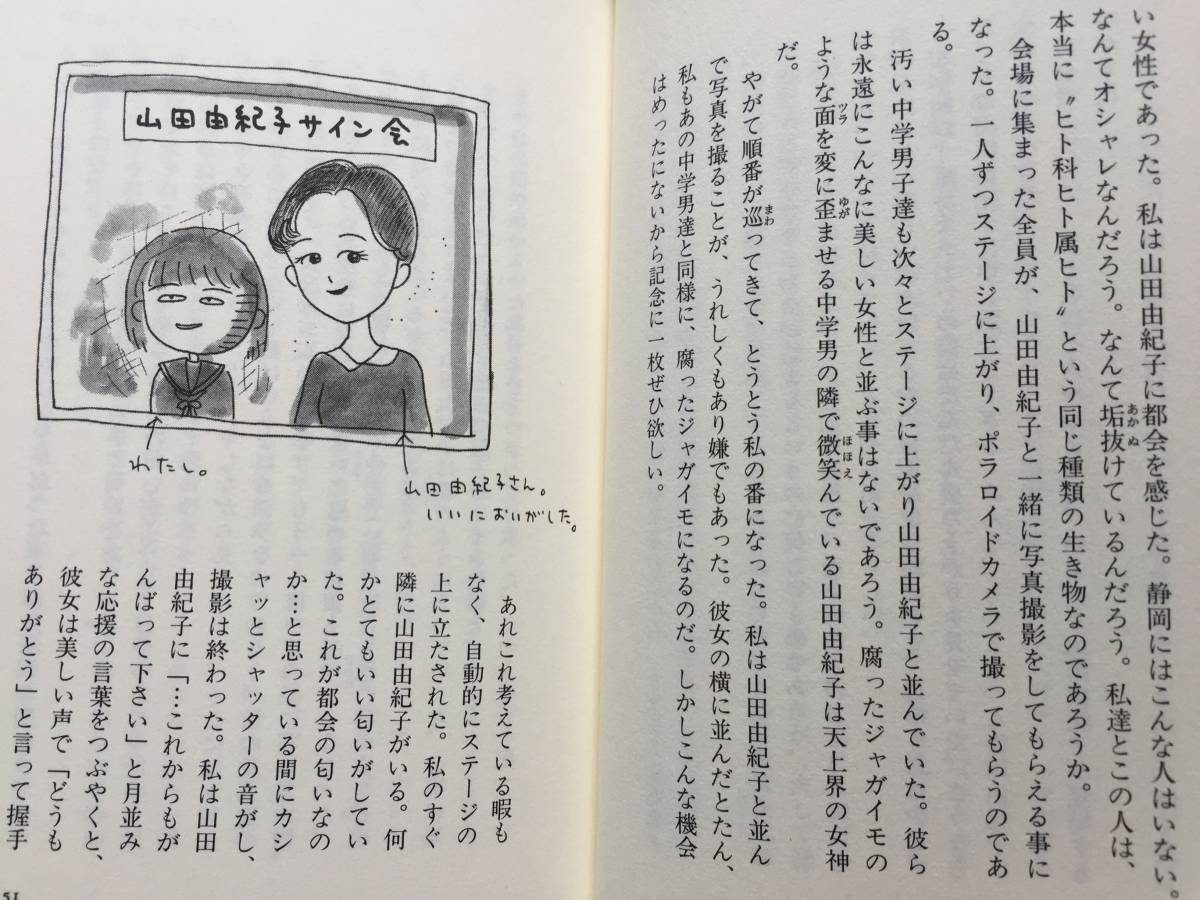 い女性であった。私は山田由紀子に都会を感じた。静岡にはこんな人はいない。
なんてオシャレなんだろう。なんて垢抜けているんだろう。私達とこの人は、
本当に〝ヒト科ヒト属ヒト〟という同じ種類の生き物なのであろうか。
会場に集まった全員が、山田由紀子と一緒に写真撮影をしてもらえる事に
なった。一人ずつステージに上がり、ポラロイドカメラで撮ってもらうのであ
る。
汚い中学男子達も次々とステージに上がり山田由紀子と並んでいた。彼ら
は永遠にこんなに美しい女性と並ぶ事はないであろう。腐ったジャガイモの
ような面を変に歪ませる中学男の隣で微笑んでいる山田由紀子は天上界の女神
だ。
やがて順番が巡ってきて、とうとう私の番になった。私は山田由紀子と並ん
で写真を撮ることが、うれしくもあり嫌でもあった。彼女の横に並んだとたん、
私もあの中学男達と同様に、腐ったジャガイモになるのだ。しかしこんな機会
はめったにないから記念に一枚ぜひ欲しい。
あかぬ
ツラ
ゆが
ほほえ
まわ
山田由紀子サイン会
わたし。
山田由紀子さん。
いいにおいがした。
あれこれ考えている暇も
なく、自動的にステージの
上に立たされた。私のすぐ
隣に山田由紀子がいる。何
かとてもいい匂いがしてい
た。これが都会の匂いなの
か…と思っている間にカシ
ャッとシャッターの音がし、
撮影は終わった。私は山田
由紀子に「…これからもが
んばって下さい」と月並み
な応援の言葉をつぶやくと、
彼女は美しい声で「どうも
ありがとう」と言って握手
51